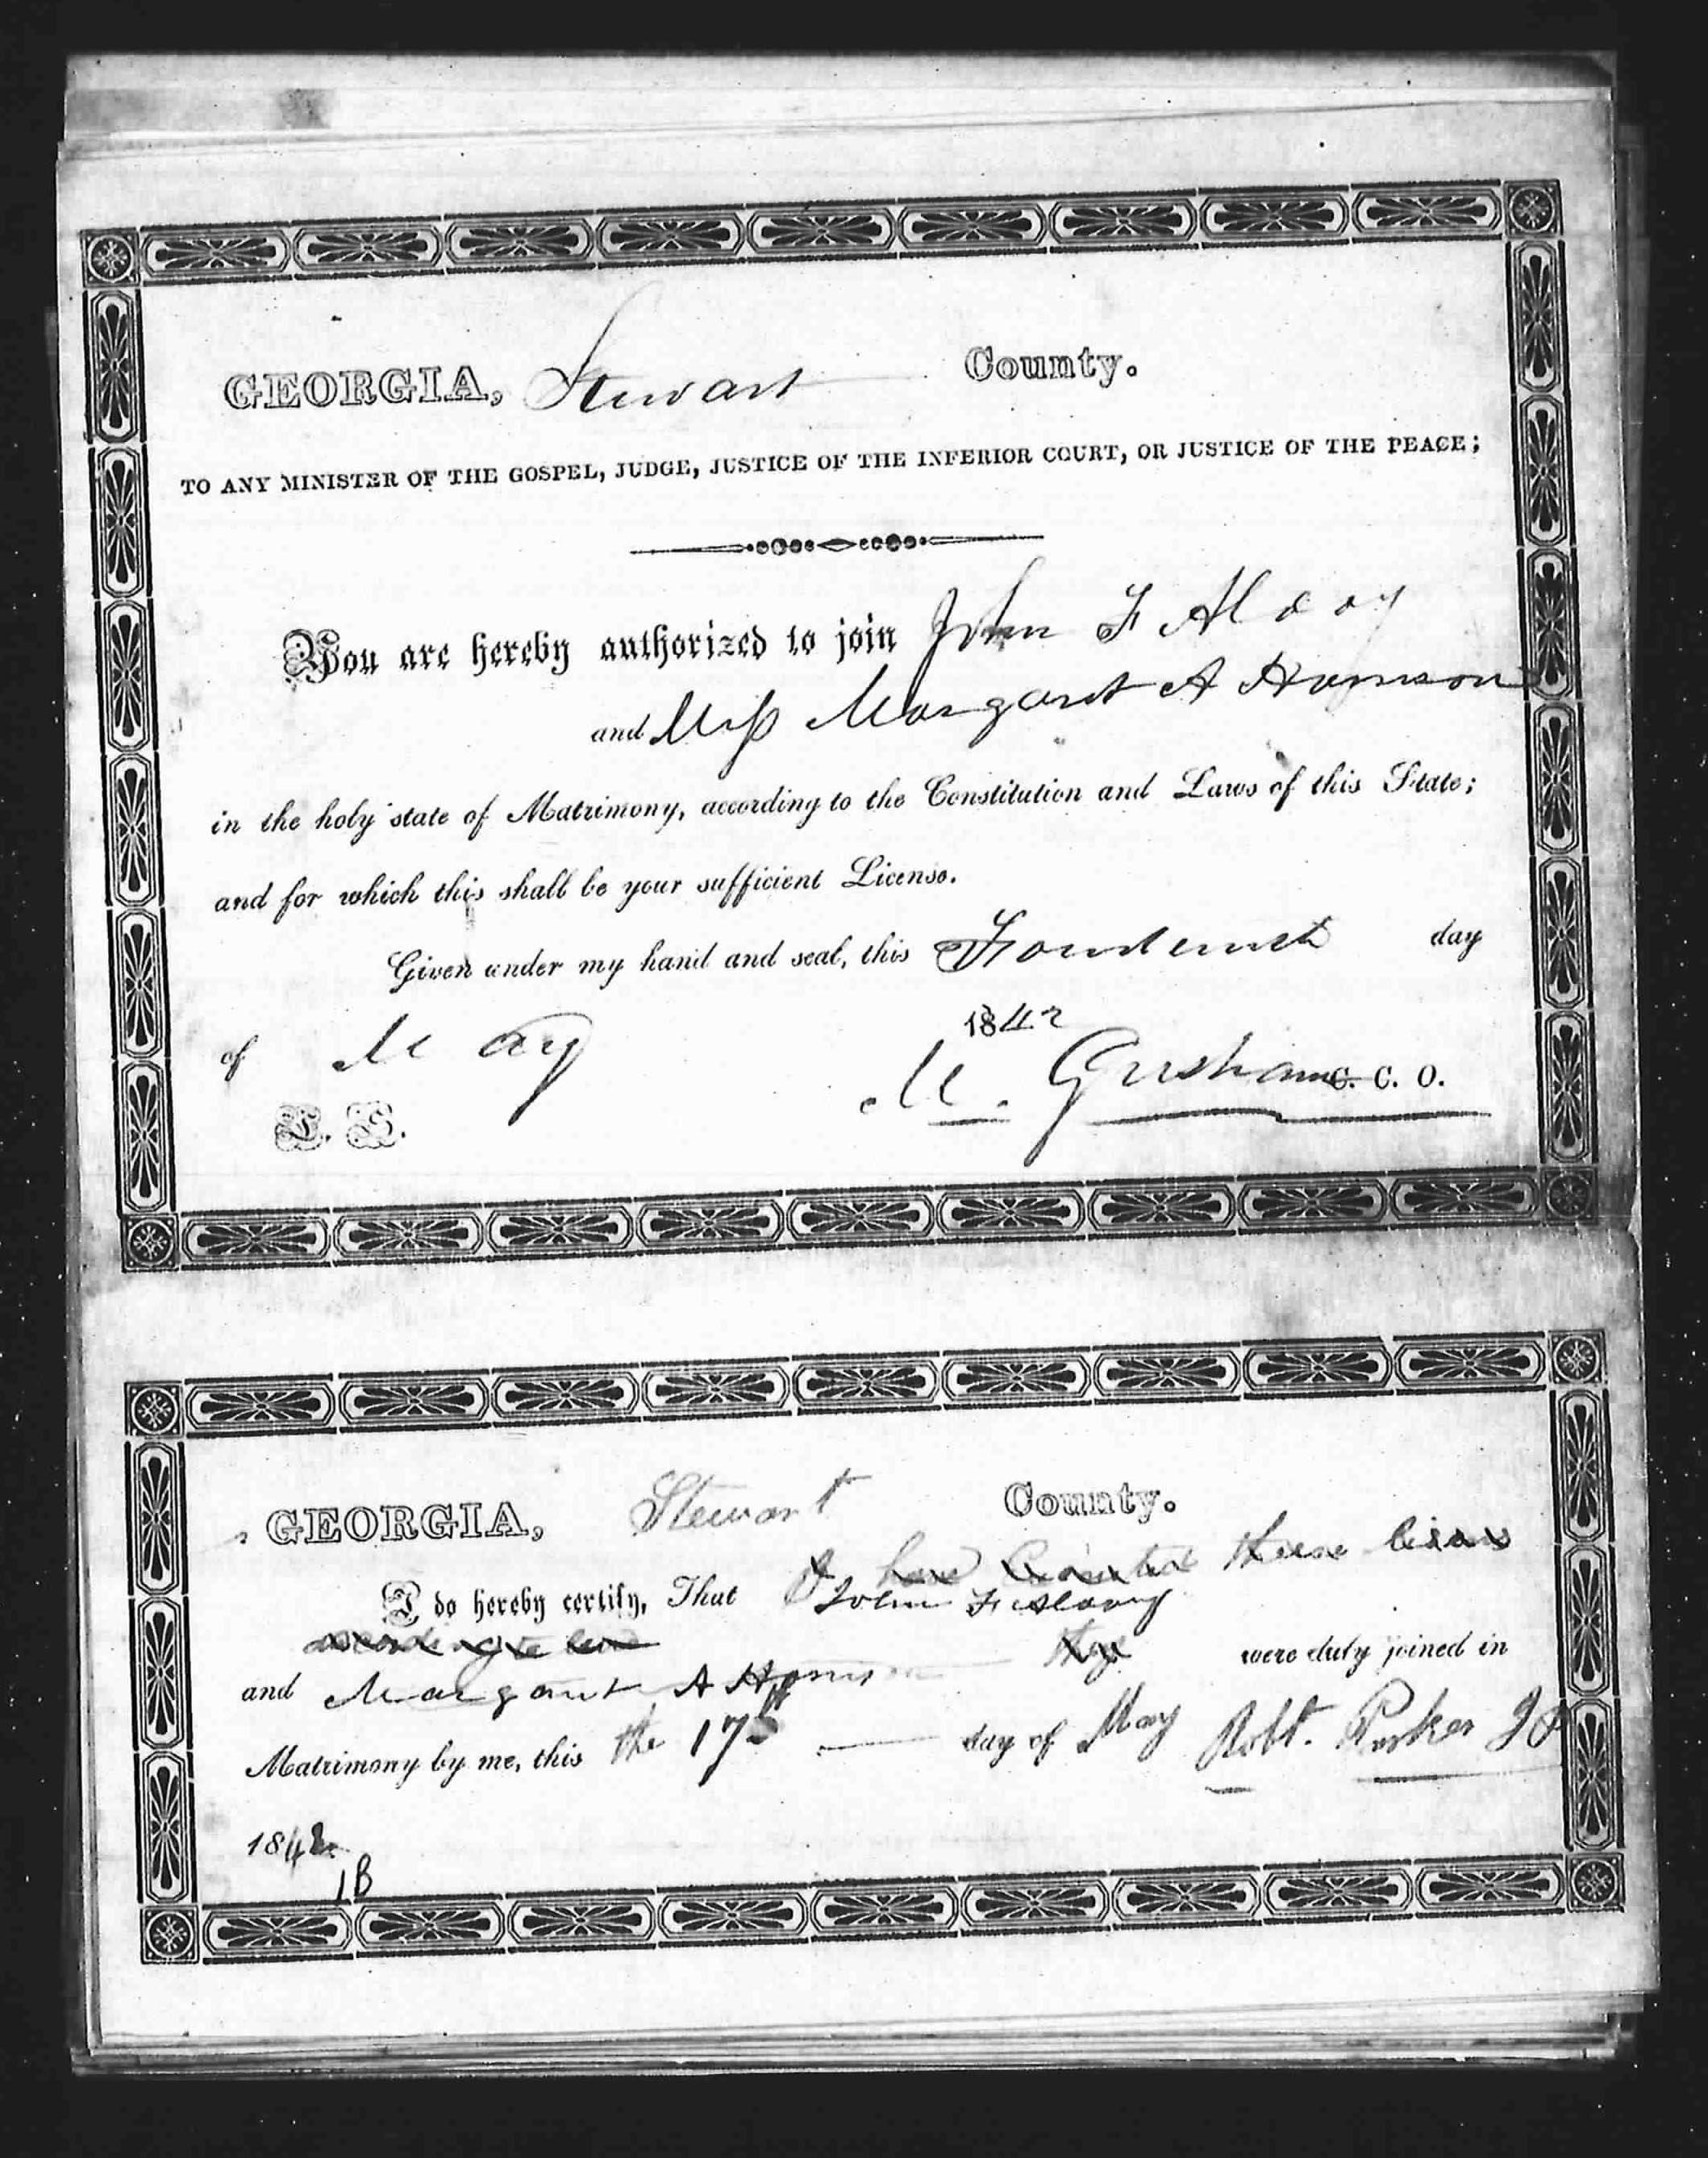 GEORGIA, Stewart County.
TO ANY MINISTER OF THE GOSPEL, JUDGE, JUSTICE OF THE INFERIOR COURT, OR JUSTICE OF THE PEACE;
You are hereby authorized to join John F
and Miss Margaret A
in the holy state of Matrimony, according to the Constitution and Laws of this State;
and for which this shall be your sufficient License.
Given under my hand and seal, this day
of May 1842
M. Gresham C. C. O.
L. S.
GEORGIA, Stewart County.
I have these
I do hereby certify, That John F
according to law they were duly joined in
and Margaret A
Matrimony by me, this the 17th day of May Robt. Parker JP
1842
1B